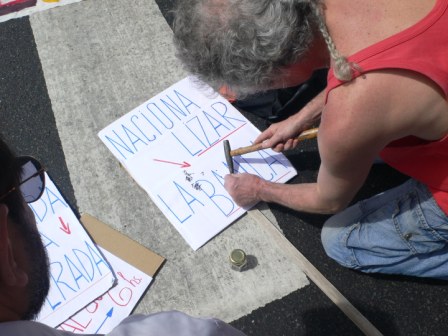 NACIONA
LIZAR
LA BANCA
DA
A
ERADA
6hs